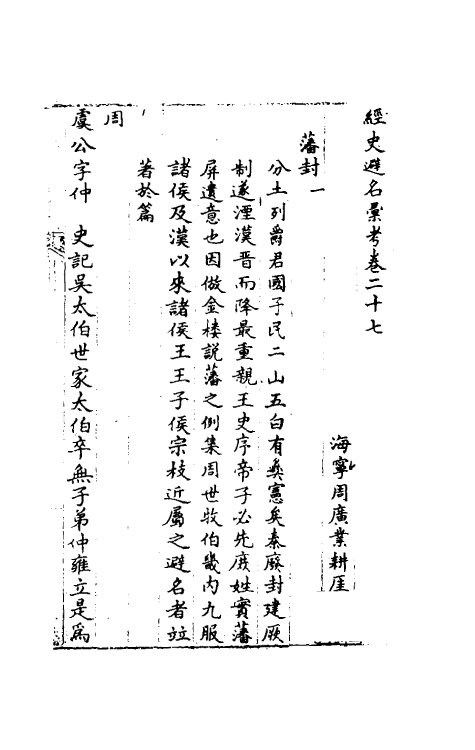 經史避名彙考卷二十七
海寧周廣業耕厓
藩封一
分土列爵君國子民二山五白有彝憲矣秦廢封建厥
制遂湮漢晉而降最重親王史序帝子必先庶姓實藩
屏遺意也因倣金楼説藩之例集周世牧伯畿内九服
諸侯及漢以來諸侯王王子侯宗枝近屬之避名者竝
著於篇
周
虞公字仲 史記吴太伯世家太伯卒無子弟仲雍立是爲